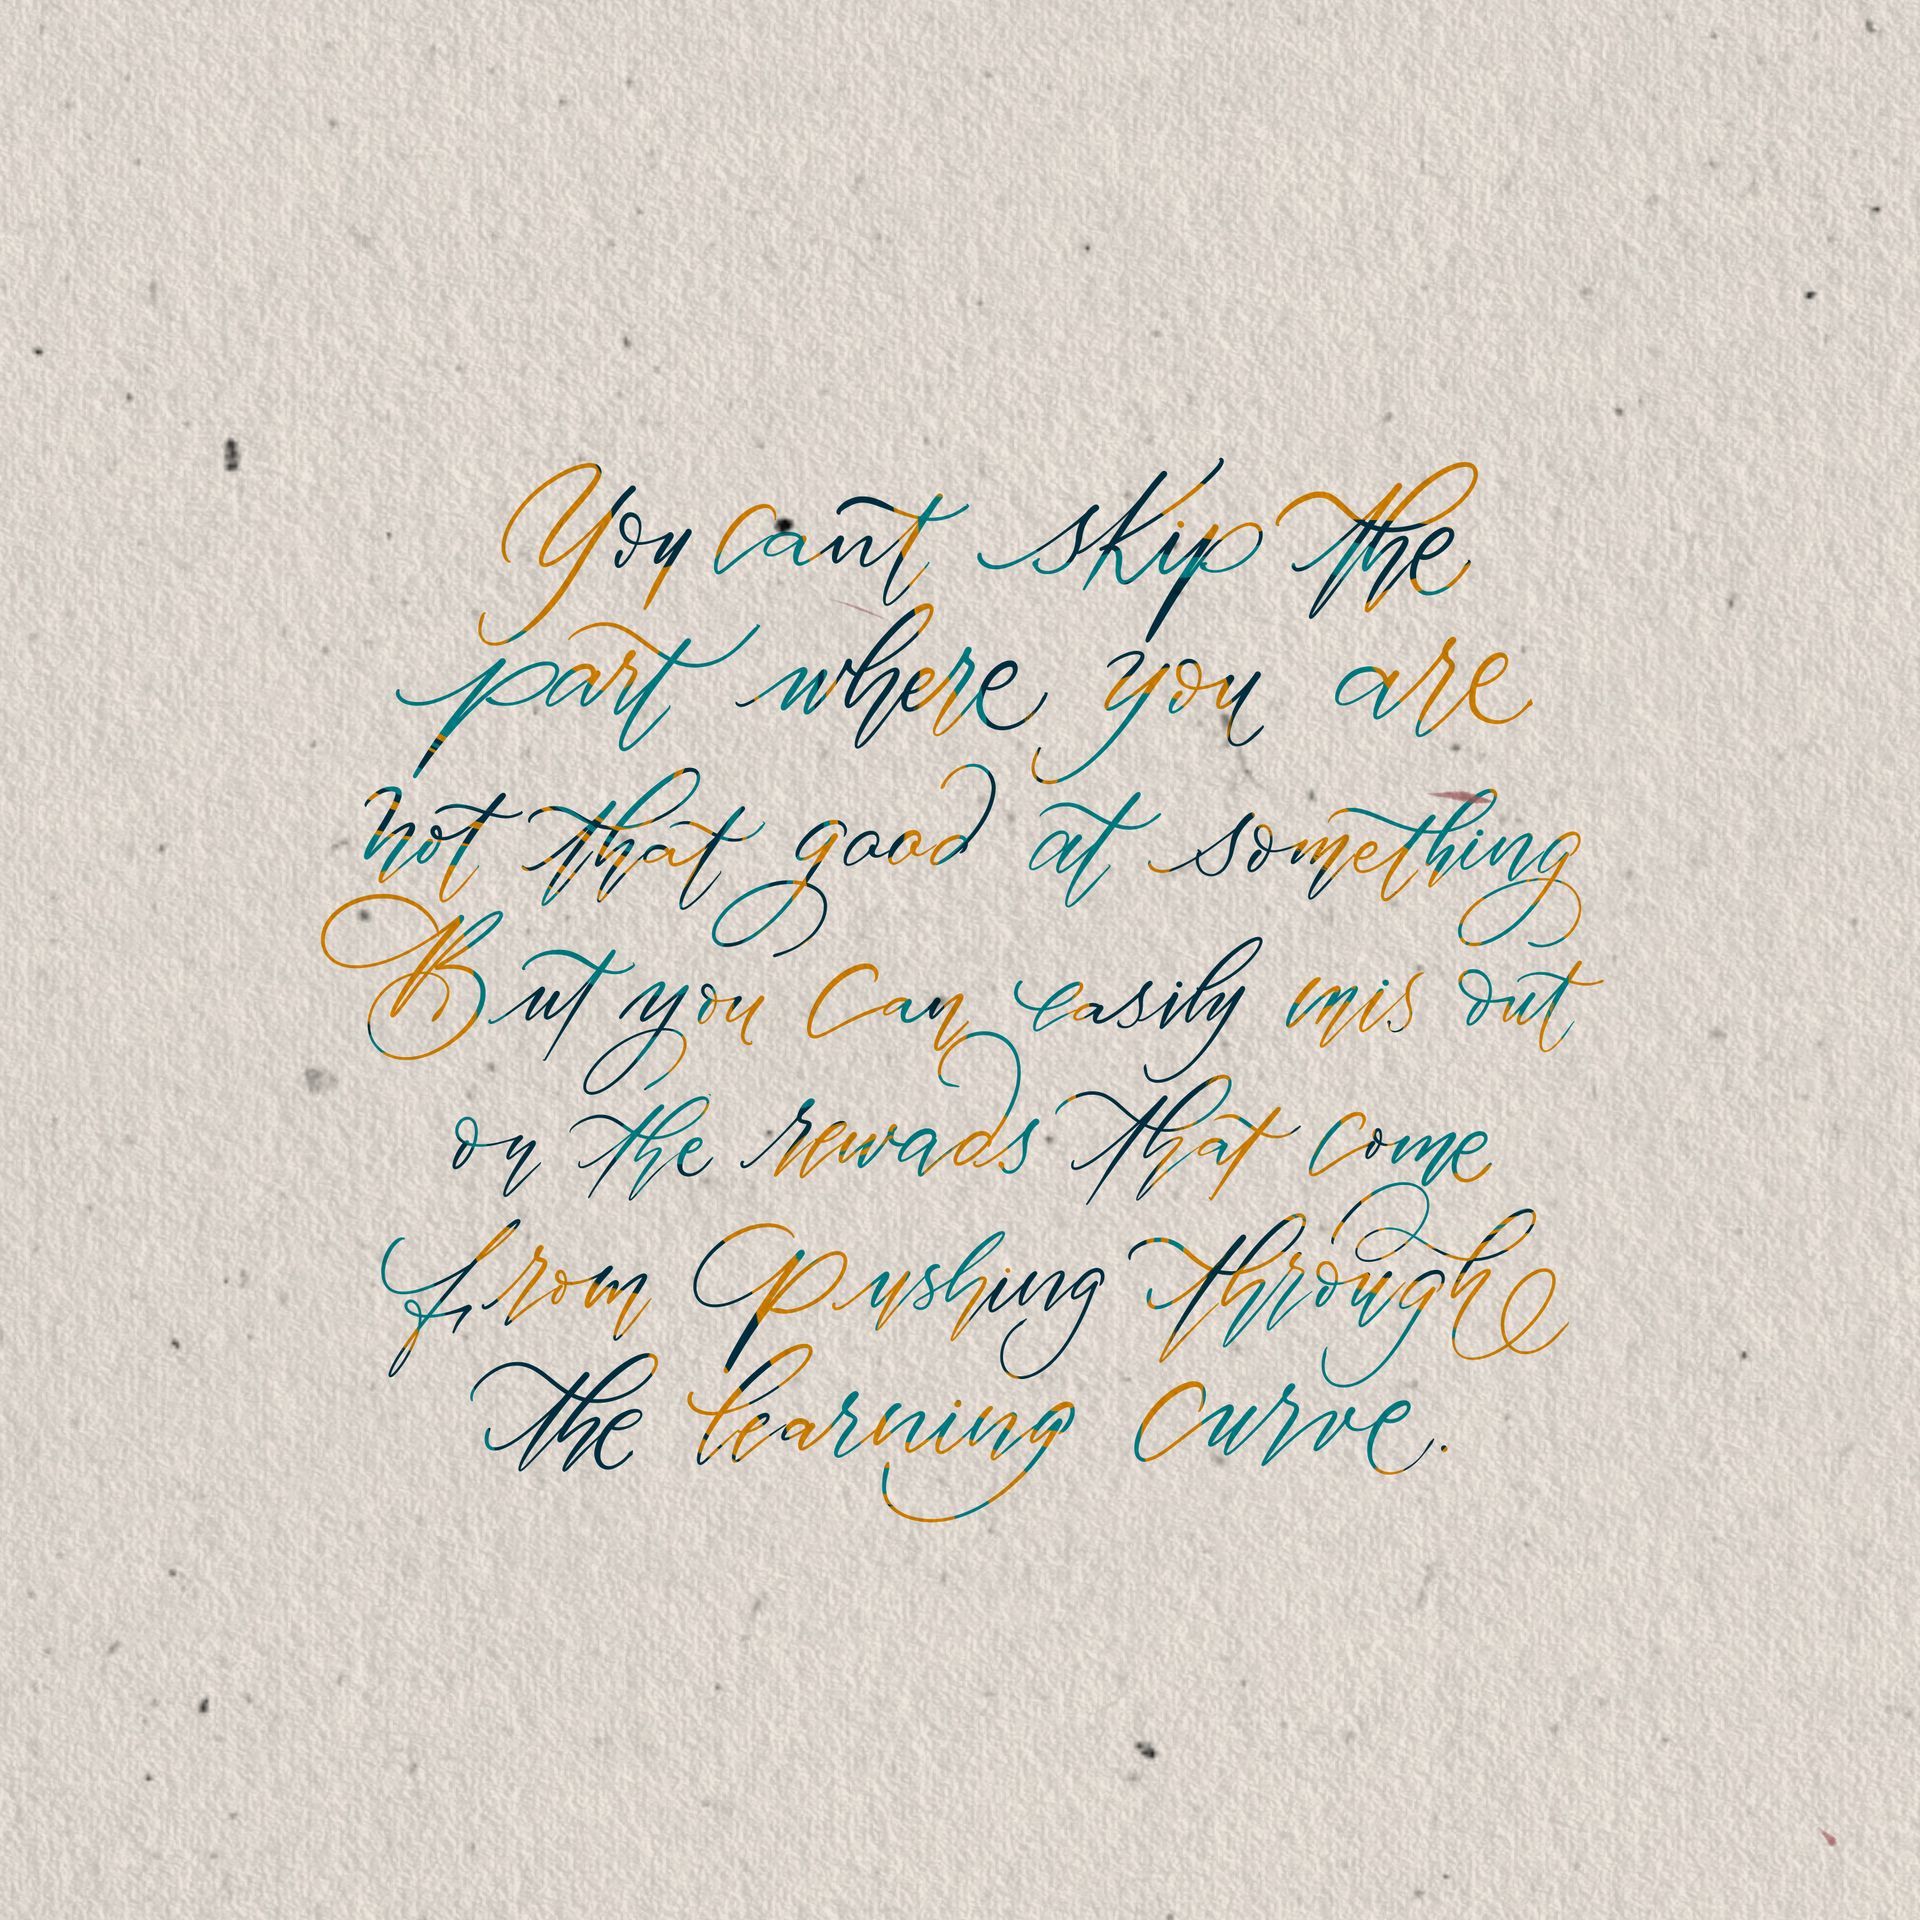 You can't skip the
part where you are
not that good at something
But you can easily mis out
on the rewads that come
from Pushing through
the learning curve.